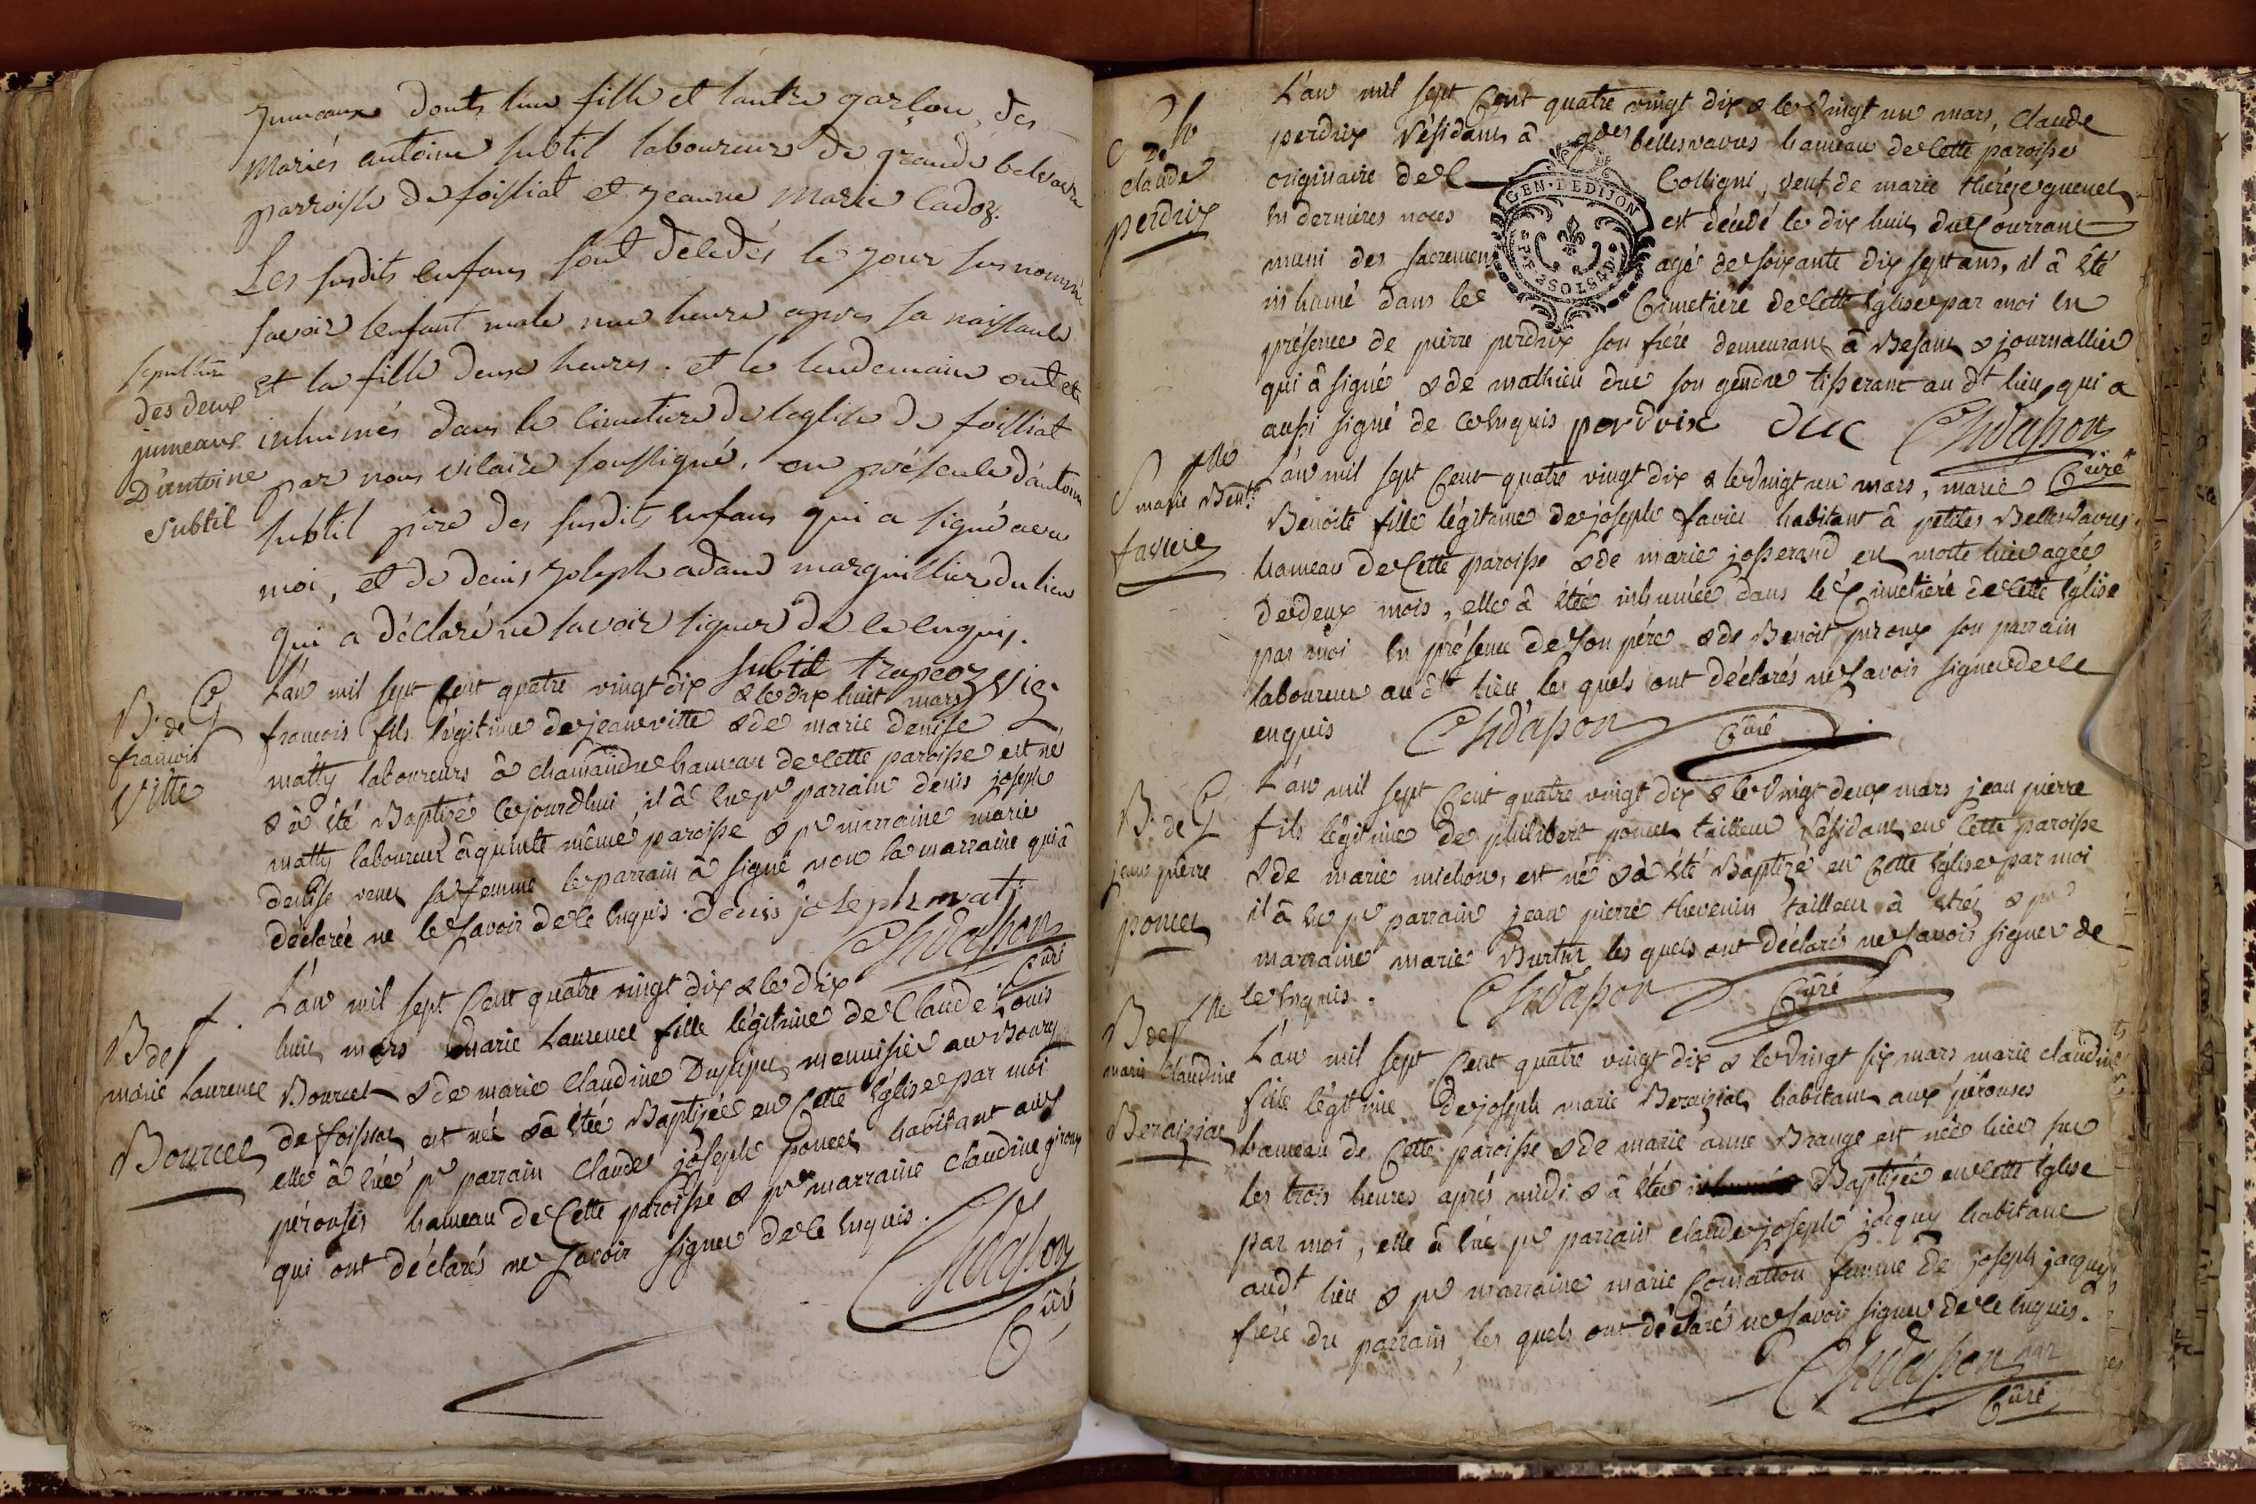 jumeaux donts lun fille et lautre garçon, des
Mariés antoine subtil laboureur de grande belvavre
parroisse de foissiat et jeanne Marie Cadoz.
Les susdits enfans sont dédédés le jour susnommé
savoir lenfant male une heure apres sa naissance
et la fille deux heures. et le lendemain ont ete
inhumés dans le cimetiere de leglise de foissiat
par nous vicaire soussigné, en présence d'antoine
subtil pere des susdits enfans qui a signé avec
moi, et de denis joseph adam marguillier du lieu
qui a déclaré ne savoir signer de ce enquis.
subtil trapcoz vic.
sepulture
des deux
jumeaux
D'antoine
subtil
L'an mil sept Cent quatre vingt dix & le dix huit mars
françois fils légitime de jean vitte & de marie denise
matty laboureurs à chamandre hameau de cette paroisse est né
& à été Baptizé cejourdhui il à eu pr parrain denis joseph
matty laboureur à quinte même paroisse & pr marraine marie
denise venet sa femme le parrain à signé non la marraine qui à
déclarée ne le savoir de ce enquis. denis joseph mati
Chdasson
Curé
B. de G
françois
Vitte
L'an mil sept Cent quatre vingt dix & le dix
huit mars marie Laurence fille légitime de Claude Louis
Bourcet & de marie Claudine Dupupet menuisier au Bourg
de foissiat est née & à étée Baptizée en Cette église par moi
elle à eûe pr parrain Claude joseph poncet habitant aux
pérouses hameau de Cette paroisse & pr marraine claudine giroux
qui ont déclarés ne savoir signer de ce enquis.
Chdasson
Curé
B de f.
marie Laurence
Bourcet
L'an mil sept Cent quatre vingt dix & le vingt un mars, Claude
perdrix Résidant à gdes bellesvavres hameau de Cette paroisse
originaire de Colligni, veuf de marie thérèze guenet
en dernières noces est décédé le dix huit du Courrant
muni des sacremens agé de soixante dix sept ans, il à été
inhumé dans le Cimetière de Cette église par moi en
présence de pierre perdrix son frére demeurant à Besant & journallier
qui à signé & de mathieu duc son gendre tisserant au dt lieu qui a
aussi signé de ce enquis perdrix duc Chdasson
Curé
S. d. h
claude
perdrix
GEN·DEDIJON
L'an mil sept Cent quatre vingt dix & le vingt un mars, marie
Benoite fille légitime de joseph favier habitant à petites Bellesvavres
hameau de Cette paroisse & de marie josserand est morte hier agée
de deux mois, elle à étée inhumée dans le Cimetiére de cette église
par moi en présence de son pére & de Benoit piroux son parrain
laboureur au dt lieu les quels ont déclarés ne savoir signer de ce
enquis Chdasson Curé
S flle
marie Bent.
favier
L'an mil sept Cent quatre vingt dix & le vingt deux mars jean pierre
fils légitime de philibert poncet tailleur Résidant en Cette paroisse
& de marie michon, est né & à été Baptizé en Cette église par moi
il à eu pr parrain jean pierre thevenin tailleur à étréz & pr
marraine marie Burtin les quels ont déclarés ne savoir signer de
ce enquis. Chdasson Curé
B. de G
jean pierre
poncet
L'an mil sept Cent quatre vingt dix & le vingt six mars marie claudine
fille légitime de joseph marie Beraiziat habitant aux pérouses
hameau de Cette paroisse & de marie anne Brange est née hier sur
les trois heures aprés midi & à étée Baptizée en cette église
par moi, elle à eûe pr parrain claude joseph jacquy habitant
audt lieu & pr marraine marie Comatton femme de joseph jacquy
frére du parrain, les quels ont déclaré ne savoir signer de ce enquis.
Chdasson
Curé
B de flle
marie claudine
Beraiziat